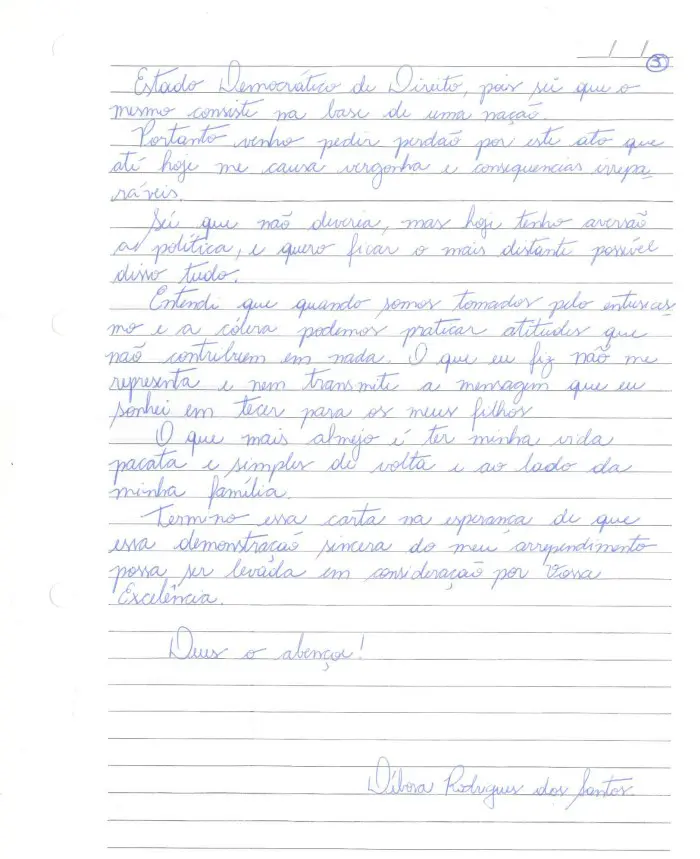 / /
3
Estado Democrático de Direito, pois sei que o
mesmo consiste na base de uma nação.
Portanto venho pedir perdão por este ato que
até hoje me causa vergonha e consequencias irrepa
ráveis.
Sei que não deveria, mas hoje tenho aversão
a política, e quero ficar o mais distante possível
disso tudo.
Entendi que quando somos tomados pelo entusias
mo e a cólera podemos praticar atitudes que
não contribuem em nada. O que eu fiz não me
representa e nem transmite a mensagem que eu
sonhei em tecer para os meus filhos
O que mais almejo é ter minha vida
pacata e simples de volta e ao lado da
minha família.
Termino essa carta na esperança de que
essa demonstração sincera do meu arrependimento
possa ser levada em consideração por Vossa
Excelência.
Deus o abençoe!
Débora Rodrigues dos Santos.